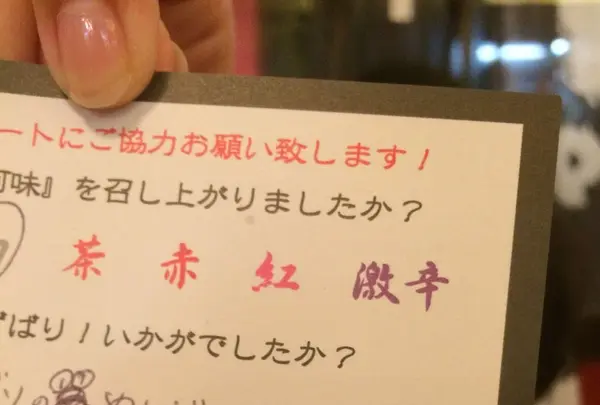 ートにご協力お願い致します！
味』を召し上がりましたか？
茶 赤 紅 激辛
ばり！いかがでしたか？